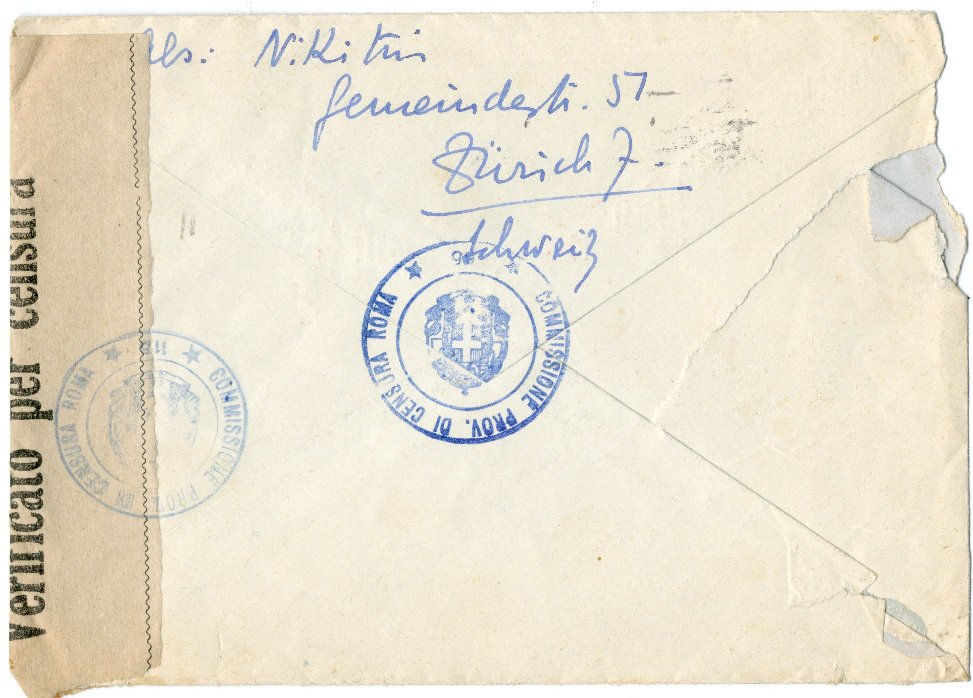 Abs: Nikitin
Gemeindestr. 51
Zürich 7.
Schweiz
COMMISSIONE PROV. DI CENSURA ROMA
Verificato per censura
COMMISSIONE PROV. DI CENSURA ROMA